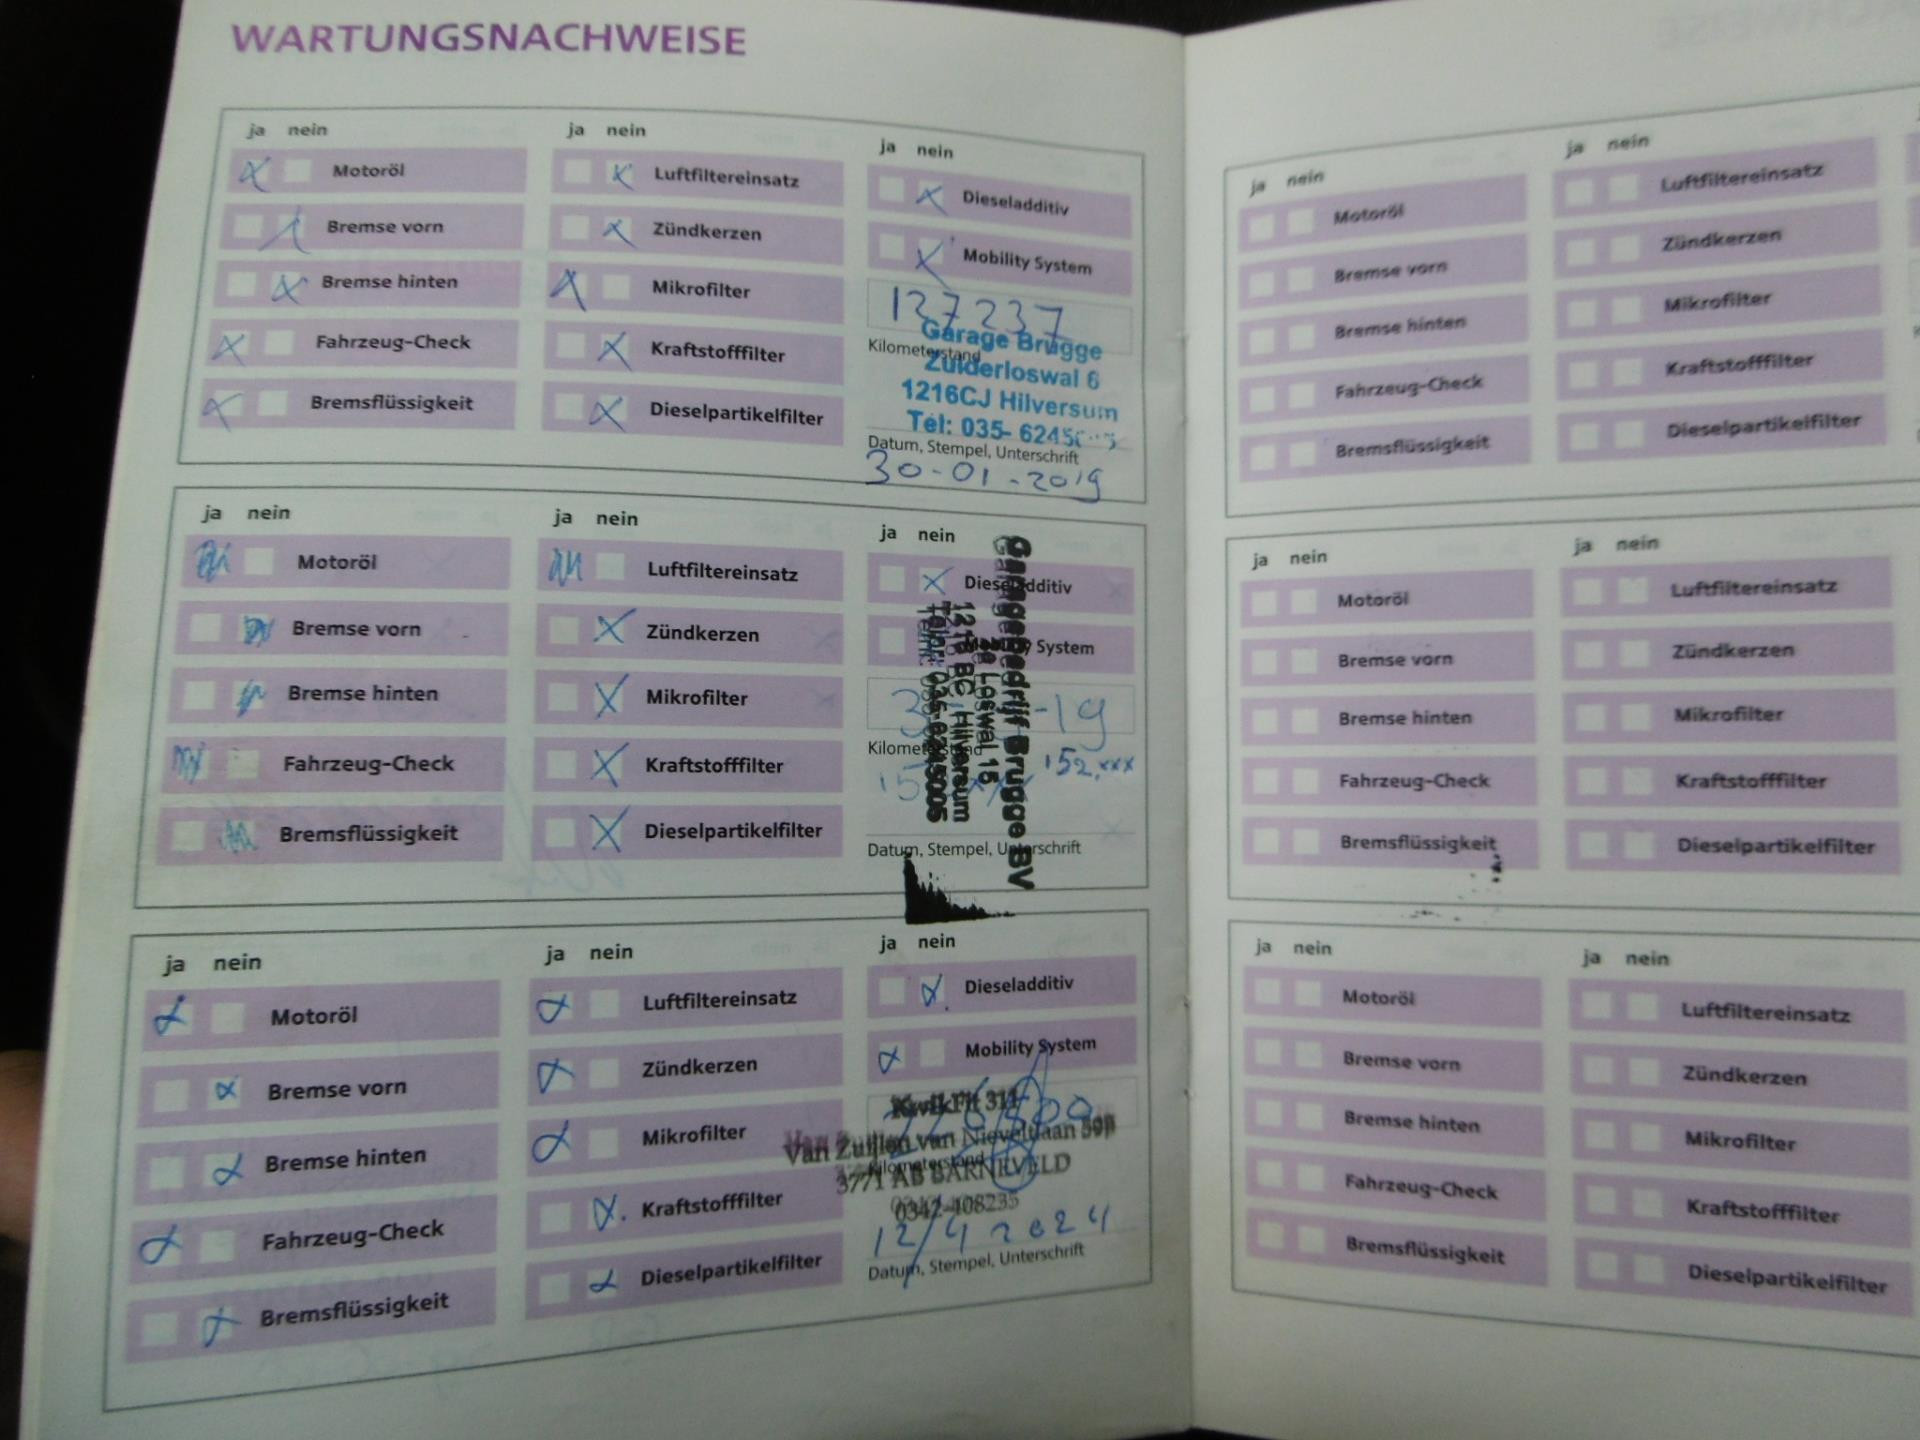 WARTUNGSNACHWEISE
ja nein
Motoröl
Bremse vorn
Bremse hinten
Fahrzeug-Check
Bremsflüssigkeit
ja nein
Luftfiltereinsatz
Zündkerzen
Mikrofilter
Kraftstofffilter
Dieselpartikelfilter
ja nein
Dieseladditiv
Mobility System
127237
Kilometerstand
Garage Brugge
Zuiderloswal 6
1216CJ Hilversum
Tel: 035-
Datum, Stempel, Unterschrift
30-01-2019
ja nein
Motoröl
Bremse vorn
Bremse hinten
Fahrzeug-Check
Bremsflüssigkeit
ja nein
Luftfiltereinsatz
Zündkerzen
Mikrofilter
Kraftstofffilter
Dieselpartikelfilter
ja nein
Dieseladditiv
Mobility System
-19
Kilometerstand
152.xxx
Datum, Stempel, Unterschrift
Garagebedrijf Brugge BV
Loswal 15
1216 BC Hilversum
ja nein
Motoröl
Bremse vorn
Bremse hinten
Fahrzeug-Check
Bremsflüssigkeit
ja nein
Luftfiltereinsatz
Zündkerzen
Mikrofilter
Kraftstofffilter
Dieselpartikelfilter
ja nein
Dieseladditiv
Mobility System
KwikFit 311
Van Zuijlen van Nieveltlaan
Kilometerstand
3771 AB BARNEVELD
0342-408235
12/4 2024
Datum, Stempel, Unterschrift
ja nein
Motoröl
Bremse vorn
Bremse hinten
Fahrzeug-Check
Bremsflüssigkeit
ja nein
Luftfiltereinsatz
Zündkerzen
Mikrofilter
Kraftstofffilter
Dieselpartikelfilter
ja nein
Motoröl
Bremse vorn
Bremse hinten
Fahrzeug-Check
Bremsflüssigkeit
ja nein
Luftfiltereinsatz
Zündkerzen
Mikrofilter
Kraftstofffilter
Dieselpartikelfilter
ja nein
Motoröl
Bremse vorn
Bremse hinten
Fahrzeug-Check
Bremsflüssigkeit
ja nein
Luftfiltereinsatz
Zündkerzen
Mikrofilter
Kraftstofffilter
Dieselpartikelfilter